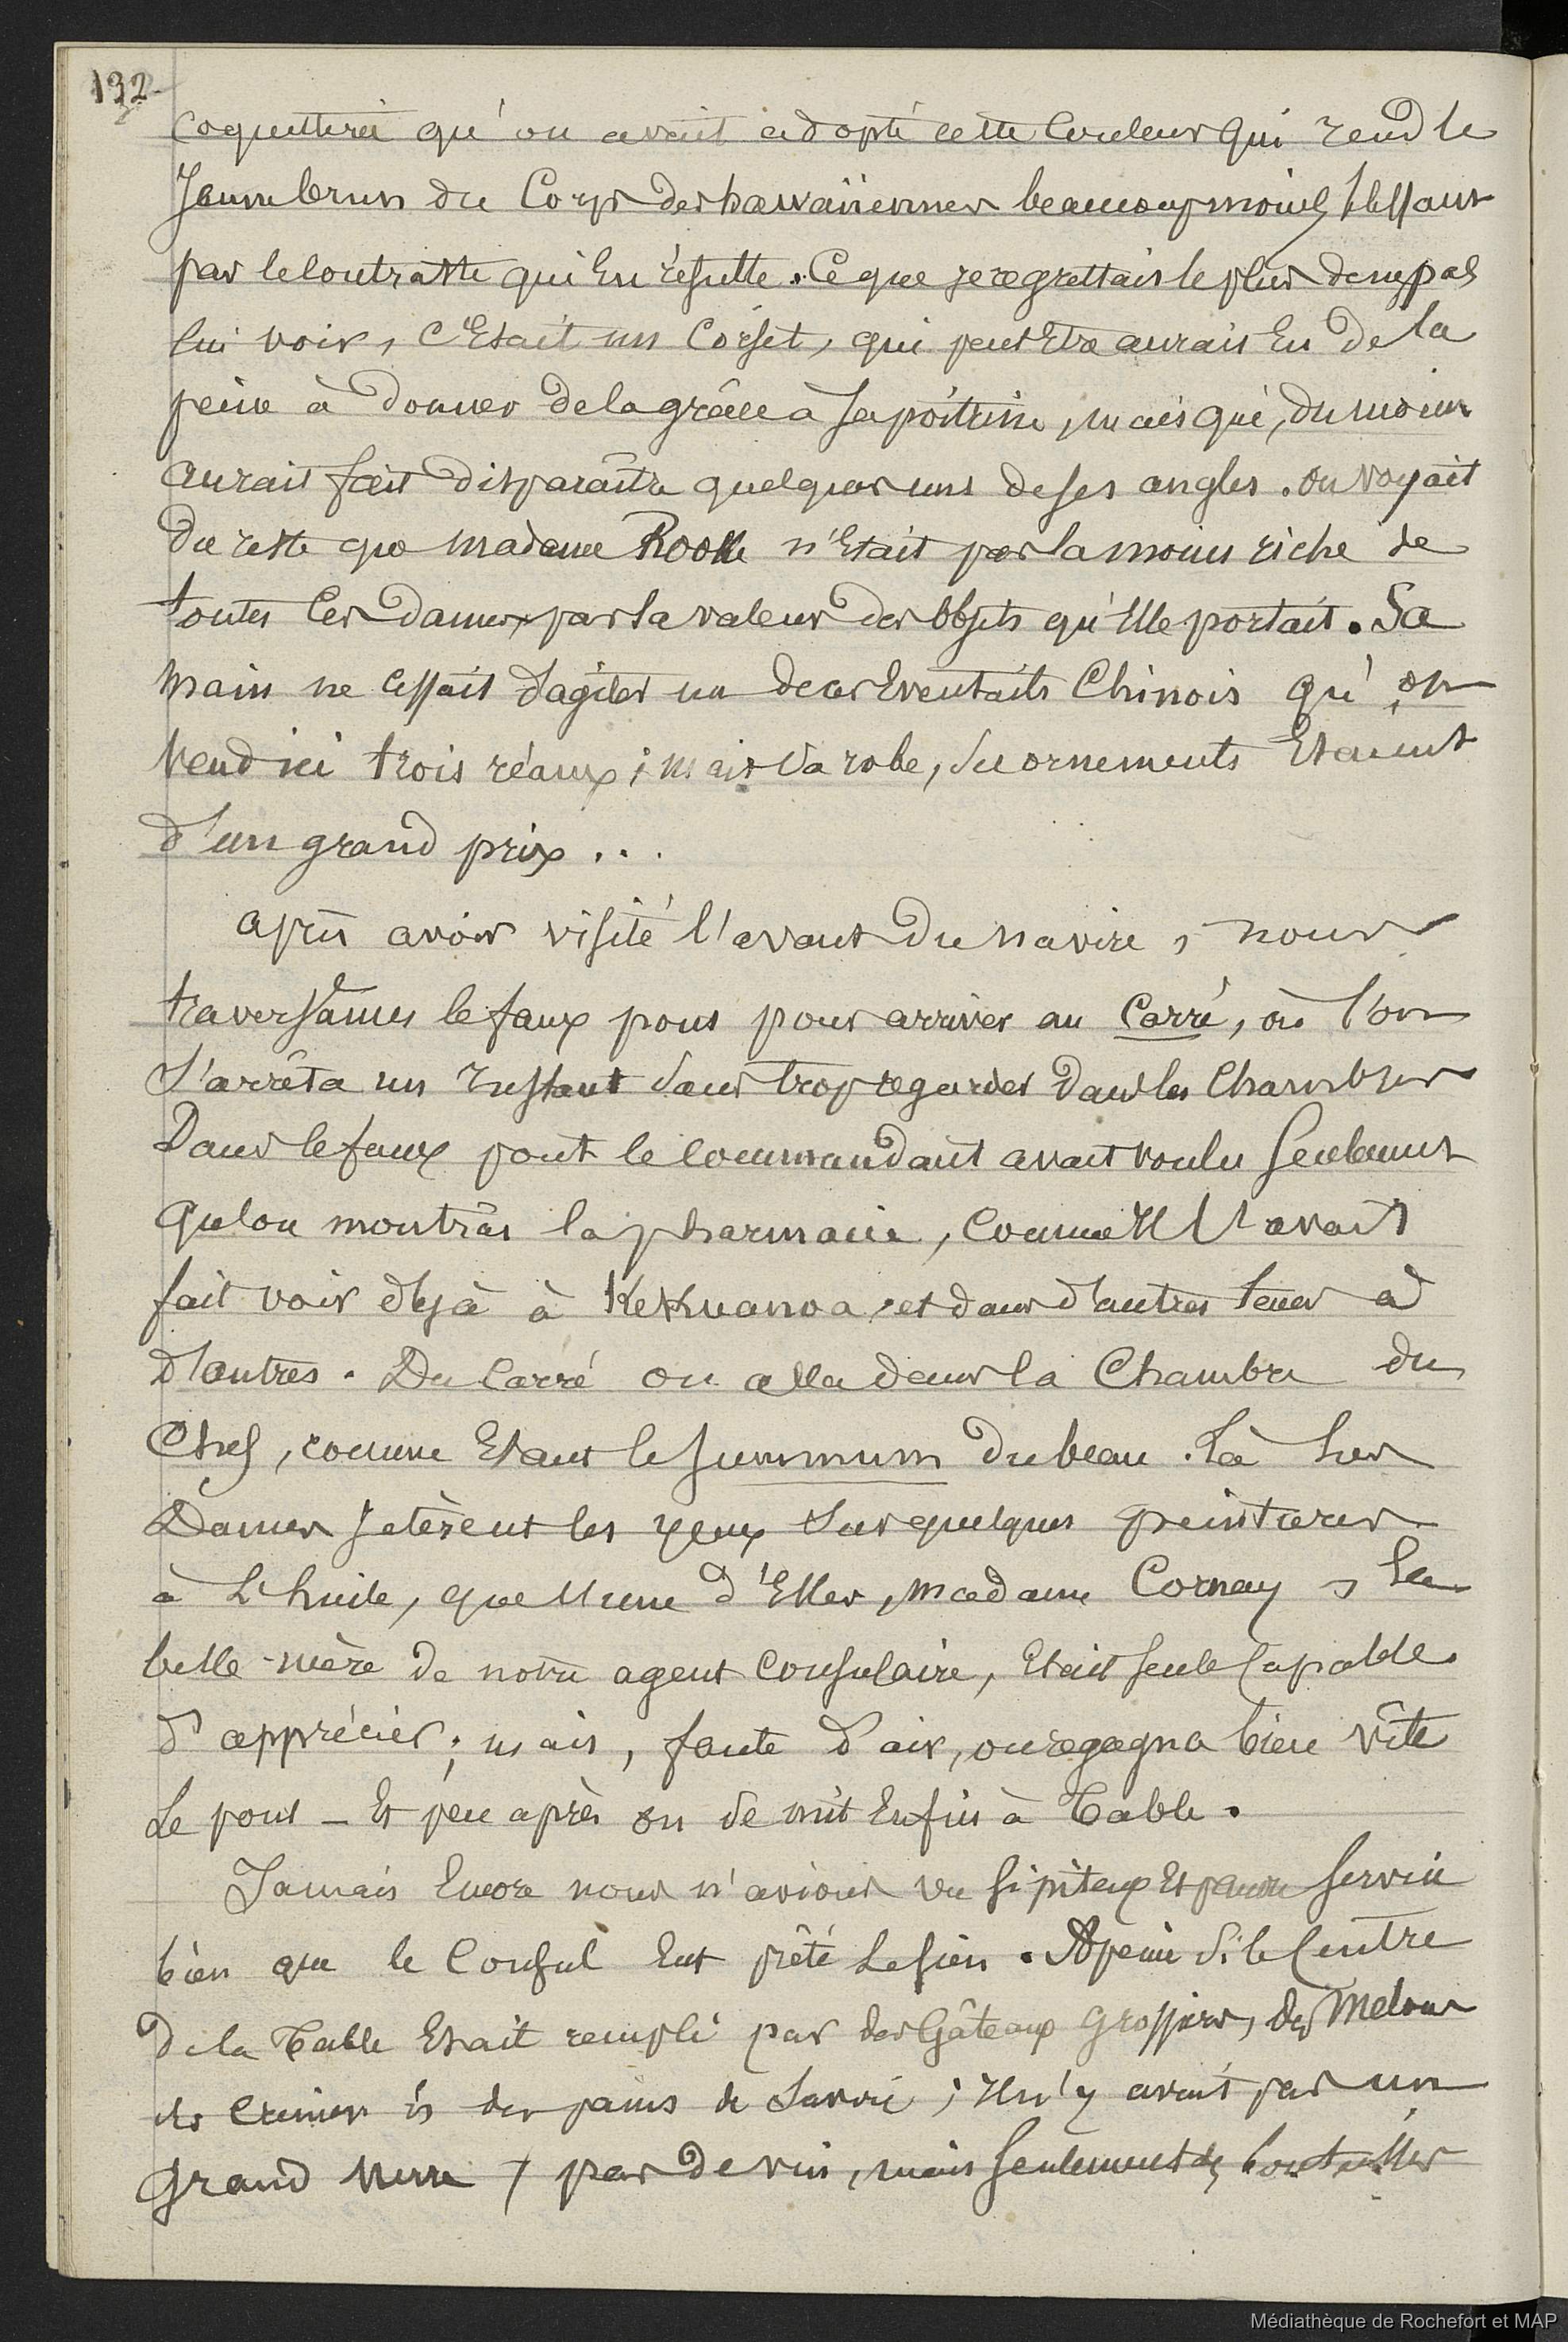 132
coquetterie qu'on avait adopté cette Couleur qui rend le
Jaune brun du Corps des hawaïiennes beaucoup moins blessant
par le Contraste qui En résulte. Ce que je regrettais le plus de ne pas
lui voir, c'Etait un Corset, qui peut Etre aurais Eu de la
peine à donner de la grâce à sa poitrine, mais qui, du moins
aurait fait disparaître quelques uns de ses angles. on voyait
du reste que madame Rooke n'Etait pas la moins riche de
toutes les dames par la valeur des objets qu'Elle portait. Sa
main ne cessait d'agiter un de ces Eventails Chinois qu'on
vend ici trois réaux; mais sa robe, ses ornements Etaient
d'un grand prix...
après avoir visité l'avant du navire, nous
traversâmes le faux pont pour arriver au Carré, où l'on
s'arrêta un Instant sans trop regarder dans les Chambres
Dans le faux pont le Commandant avait voulu seulement
qu'on montrât la pharmacie, Comme Il l'avait
fait voir déjà à Kekuanoa, et dans d'autres tems à
d'autres. Du Carré on alla dans la Chambre du
Chef, comme Etant le summum du beau. Là les
Dames jetèrent les yeux sur quelques peintures
à L'huile, que l'une d'Elles, madame Cornay, la
belle-mère de notre agent Consulaire, Etait seule Capable
d'apprécier; mais, faute d'air, on regagna bien vîte
Le pont _ Et peu après on se mit Enfin à Table.
Jamais Encore nous n'avions vu si piteux Et pauvre service
bien que le Consul Eut prêté Le sien. A peine si le Centre
de la Table Etait rempli par des Gâteaux grossiers, des Melons
des Crêmes Et des pains de Savoie; Il n'y avait pas un
grand verre, pas de vin, mais seulement des bouteilles
Médiathèque de Rochefort et MAP